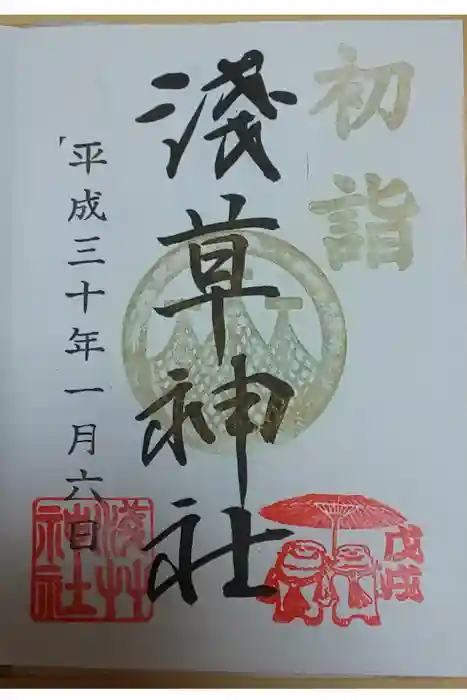 初詣
淺草神社
平成三十年一月六日
淺草神社
戊戌